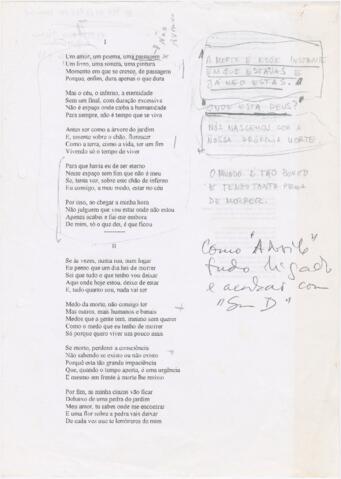 I
Um amor, um poema, uma passagem
Um livro, uma sonata, uma pintura
Momento em que se cresce, de passagem
Porque, enfim, dura apenas o que dura
Mas o céu, o inferno, a eternidade
Sem um final, com duração excessiva
Não é espaço onde caiba a humanidade
Para sempre, não é tempo que se viva
Antes ser como a árvore do jardim
E, assente sobre o chão, florescer
Como a terra, como a vida, ter um fim
Vivendo só o tempo de viver
Para que havia eu de ser eterno
Nesse espaço sem fim que não é meu
Se, tanta vez, sobre este chão de inferno
Eu consigo, a meu modo, estar no céu
Por isso, ao chegar a minha hora
Não julguem que vou estar onde não estou
Apenas acabei e fui-me embora
De mim, só o que dei, é que ficou
II
Se às vezes, numa rua, num lugar
Eu penso que um dia hei de morrer
Sei que tudo o que tenho vou deixar
Aqui onde hoje estou, deixar de estar
E, tudo quanto sou, nada vai ter
Medo da morte, não consigo ter
Mas outros, mais humanos e banais
Medos que a gente tem, mesmo sem querer
Como o medo que eu tenho de morrer
Só porque quero viver um pouco mais
Se morto, perderei a consciência
Não sabendo se existo ou não existo
Porquê esta tão grande impaciência
Que, quando o tempo aperta, é uma urgência
E mesmo em frente à morte lhe resisto
Por fim, as minha cinzas vão ficar
Debaixo de uma pedra do jardim
Meu amor, tu sabes onde me encontrar
E uma flor sobre a pedra vais deixar
De cada vez que te lembrares de mim
A MORTE É ESSE INSTANTE
EM QUE ESTAVAS E
JÁ NÃO ESTÁS.
ONDE ESTÁ DEUS?
NÓS NASCEMOS COM A
NOSSA PRÓPRIA MORTE
O MUNDO É TÃO BONITO
E TENHO TANTA PENA
DE MORRER.
Como "Abril"
tudo ligado
e acabar com